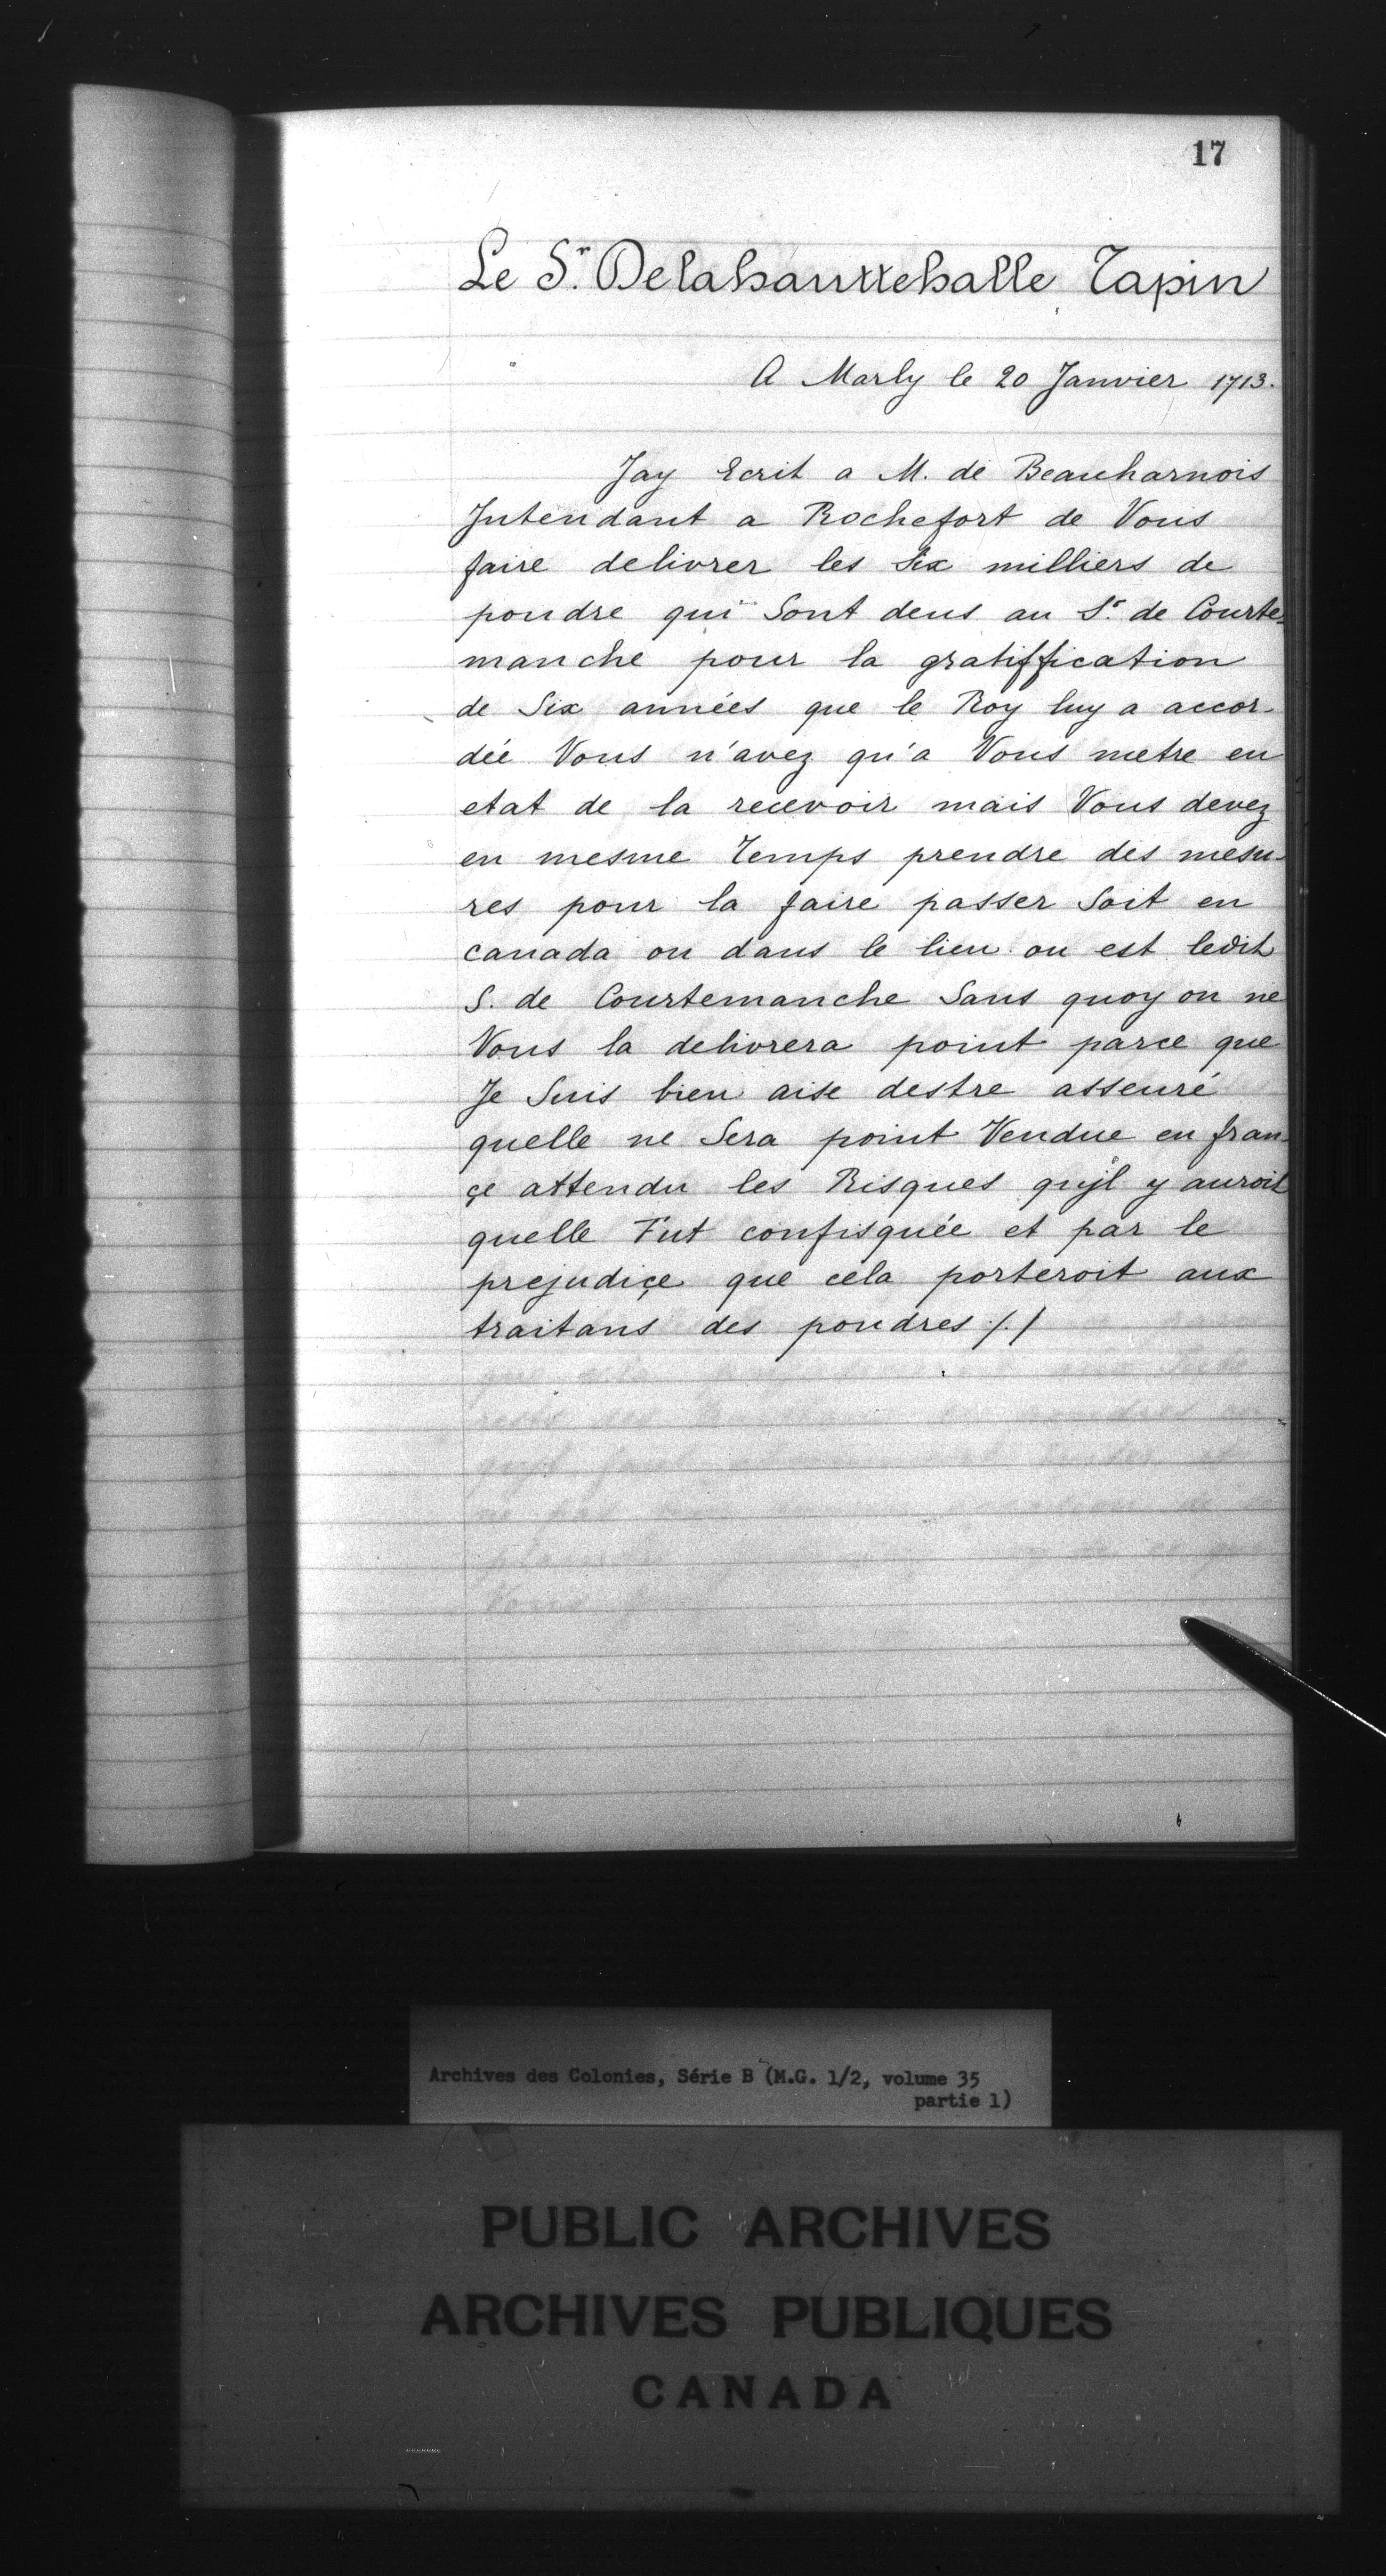 17
Le Sr. Delahauttehalle Tapin
A Marly le 20 Janvier 1713.
Jay Ecrit a M. de Beauharnois
Intendant a Rochefort de Vous
faire delivrer les Six milliers de
poudre qui Sont deus au Sr. de Courte-
manche pour la gratiffication
de Six années que le Roy luy a accor-
dée Vous n'avez qu'a Vous metre en
etat de la recevoir mais Vous devez
en mesme Temps prendre des mesu-
res pour la faire passer Soit en
canada ou dans le lieu ou est ledit
S. de Courtemanche Sans quoy on ne
Vous la delivrera point parce que
Je Suis bien aise destre asseuré
quelle ne Sera point Vendue en fran-
çe attendu les Risques qujl y auroit
quelle Fut confisquée et par le
prejudiçe que cela porteroit aux
traitans des poudres /./
Archives des Colonies, Série B (M.G. 1/2, volume 35
partie 1)
PUBLIC ARCHIVES
ARCHIVES PUBLIQUES
CANADA